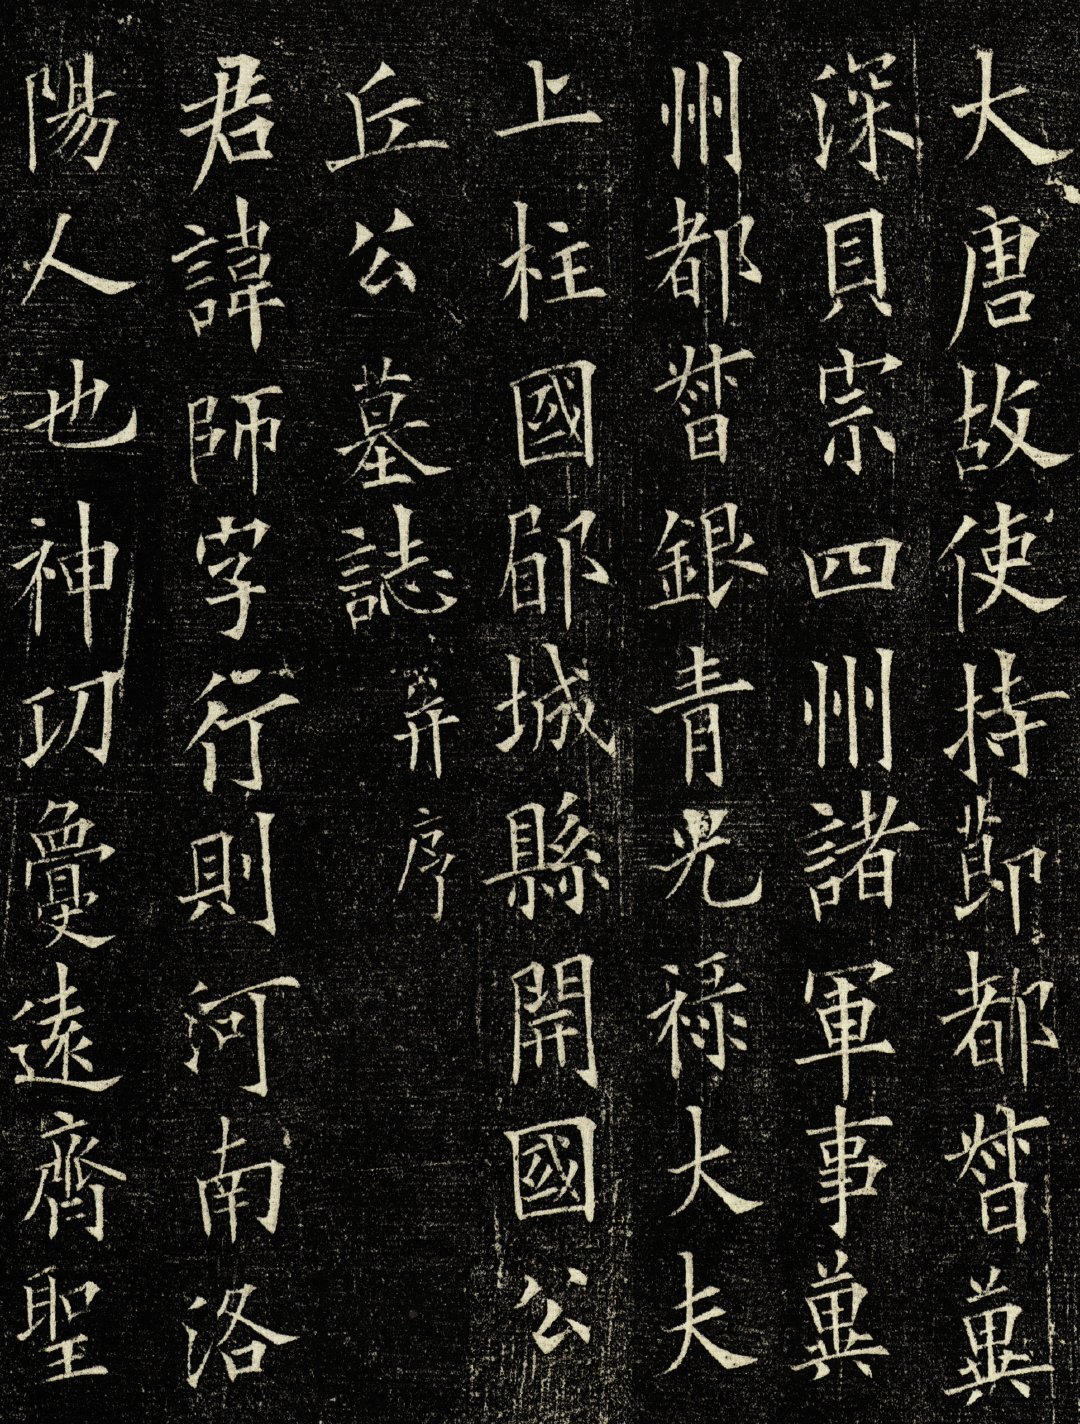 大唐故使持節都督冀
深貝宗四州諸軍事冀
州都督銀青光祿大夫
上柱國郿城縣開國公
丘公墓誌
并序
君諱師字行則河南洛
陽人也神功敻遠齊聖